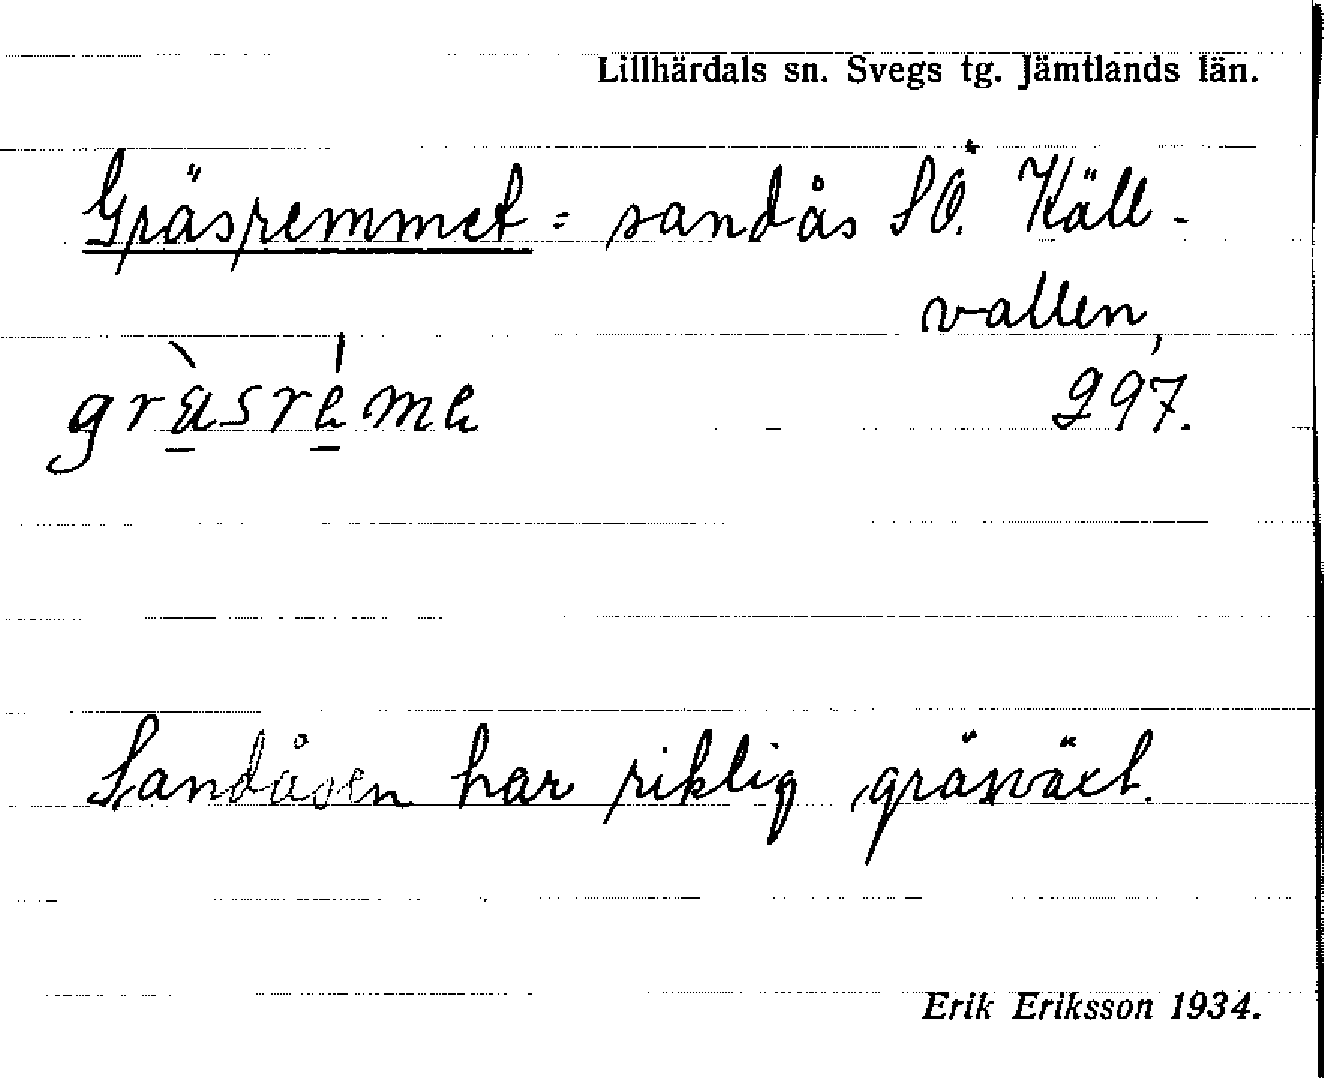 Lillhärdals sn. Svegs tg. Jämtlands län.
Gräsremmet = sandås SÖ. Käll-
vallen,
gràsréme 297.
Sandåsen har riklig gräsväxt.
Erik Eriksson 1934.